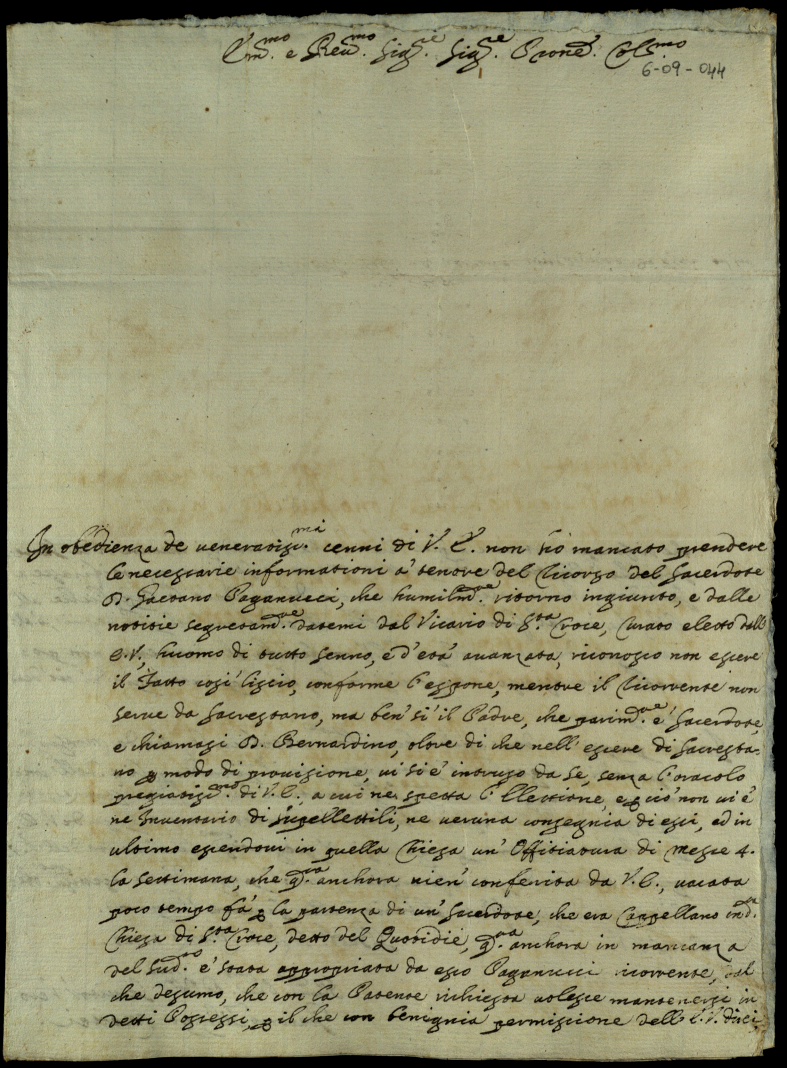 Em.mo e Reu.mo Sig.re Sig.re Prone Col.mo
6-09-044
In obedienza de ueneratisi.mi cenni di V. E. non hò mancato prendere
le necessarie informationi à tenore del Ricorso del Sacerdote
D. Gaetano Paganucci, che humilm.te ritorno ingiunto, e dalle
notitie segretam.te datemi dal Vicario di S.ta Croce, Curato eletto dall
E.V., huomo di tutto senno, e d'età auanzata, riconosco non essere
il Fatto così liscio, conforme l'espone, mentre il Ricorrente non
serue da Sacrestano, ma ben' sì il Padre, che parim.te è Sacerdote,
e chiamasi D. Bernardino, oltre di che nell' essere di Sacresta-
no p modo di prouisione, ui si è intruso da se, senza l'oracolo
pregiatisi.mo di V.E., a cui ne spetta l'Elettione, e p ciò non ui è
ne Inuentario di supellettili, ne ueruna consegnia di essi, ed in
ultimo essendoui in quella Chiesa un' Offitiatura di Messe 4.
la settimana, che q.ta anchora uien' conferita da V.E., uacata
poco tempo fà p la partenza di un' Sacerdote, che era Cappellano in d.a
Chiesa di S.ta Croce, detto del Quotidiè, q.ta anchora in mancanza
del sud.o è stata appropriata da esso Paganucci ricorrente, dal
che desumo, che con la Patente richiesta uolesse mantenersi in
detti Possessi, p il che con benignia permissione dell' E.V. direi